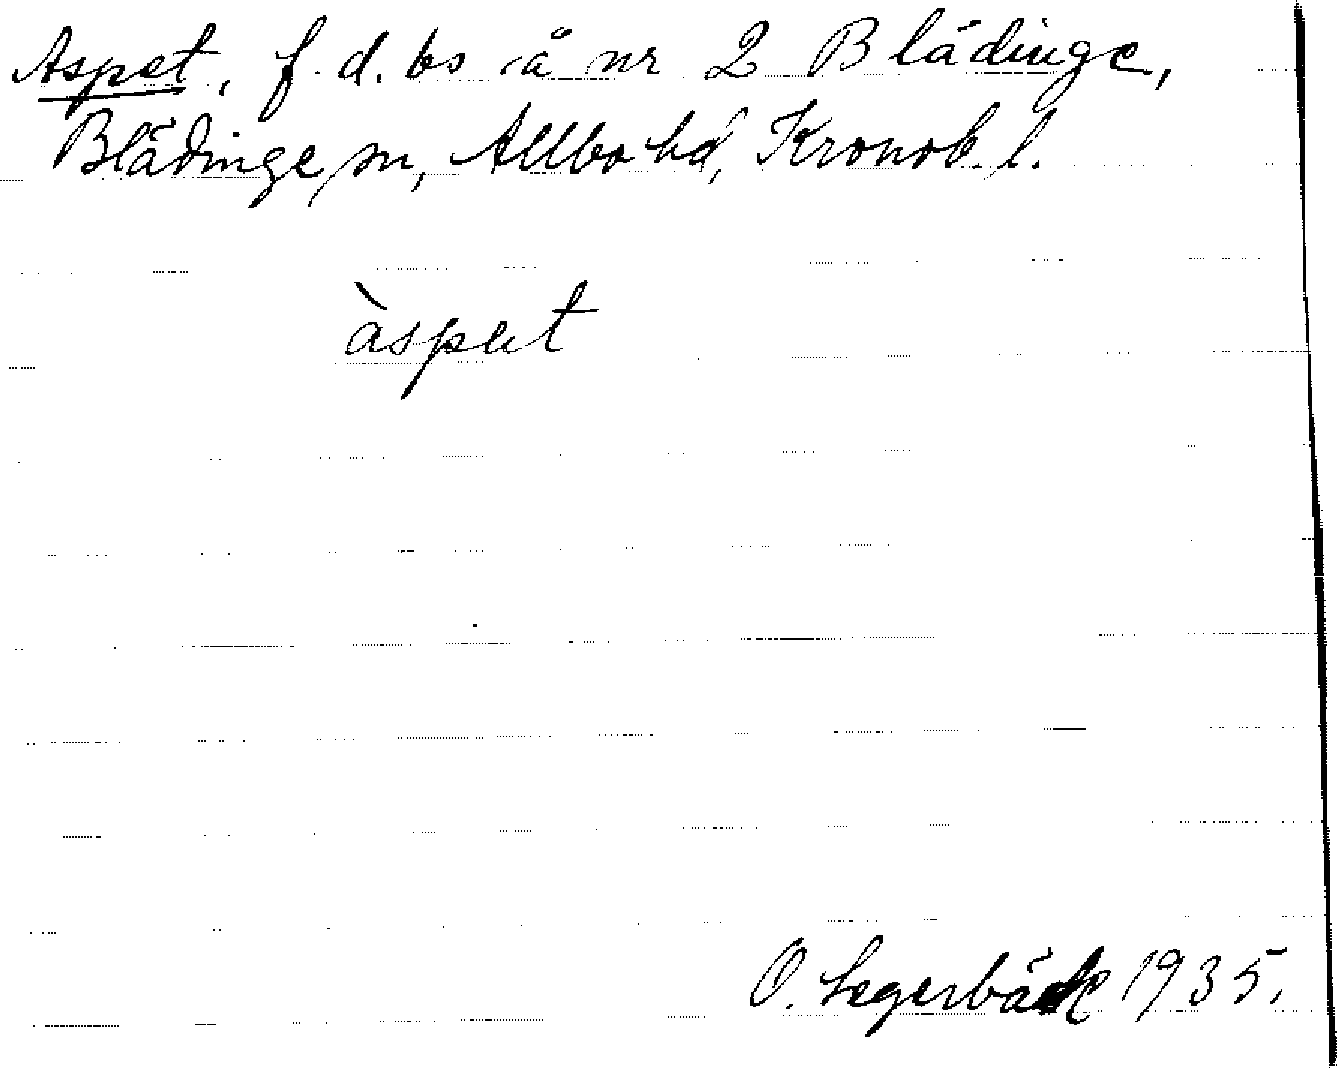 Aspet, f. d. bs å nr 2 Blädinge,
Blädinge sn, Allbo hd, Kronob. l.
àspet
O. Lagerbäck 1935.